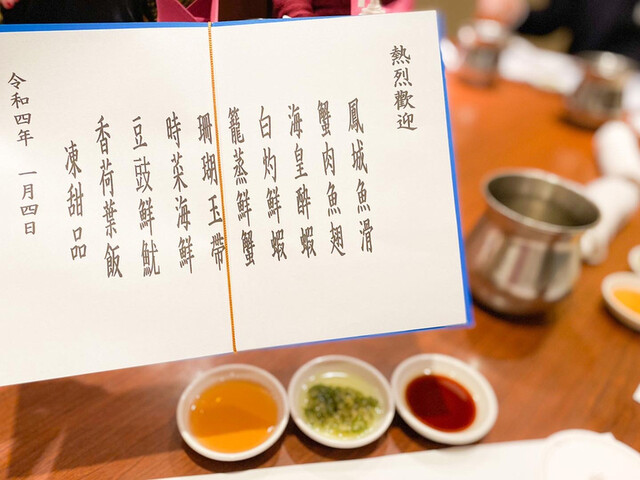 熱烈歡迎
鳳城魚滑
蟹肉魚翅
海皇酔蝦
白灼鮮蝦
籠蒸鮮蟹
珊瑚玉帶
時菜海鮮
豆豉鮮魷
香荷葉飯
凍甜品
令和四年 一月四日